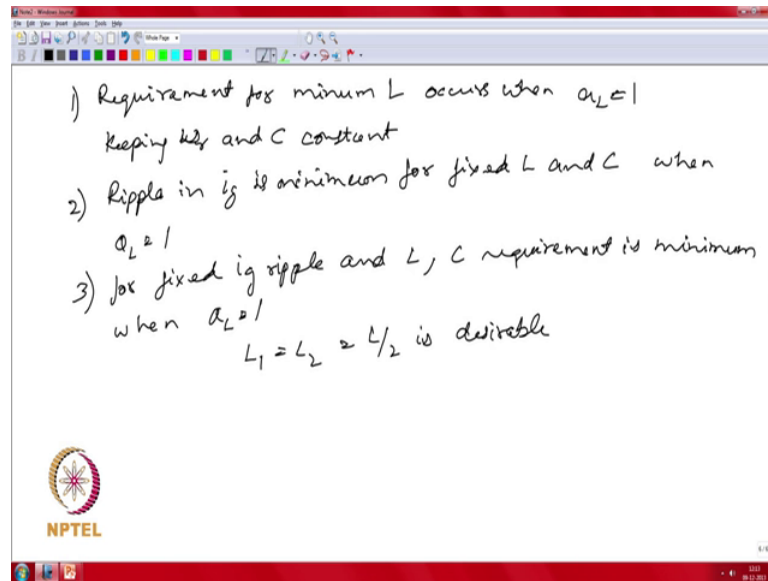 Note2 - Windows Journal
File Edit View Insert Actions Tools Help
Whole Page
1) Requirament for minum L occurs when a_L = 1
Keeping and C constant
2) Ripple in ig is minimum for fixed L and C when
a_L = 1
3) for fixed ig ripple and L, C requirement is minimum
when a_L = 1
L_1 = L_2 = L/2 is desirable
NPTEL
6/6
12:13